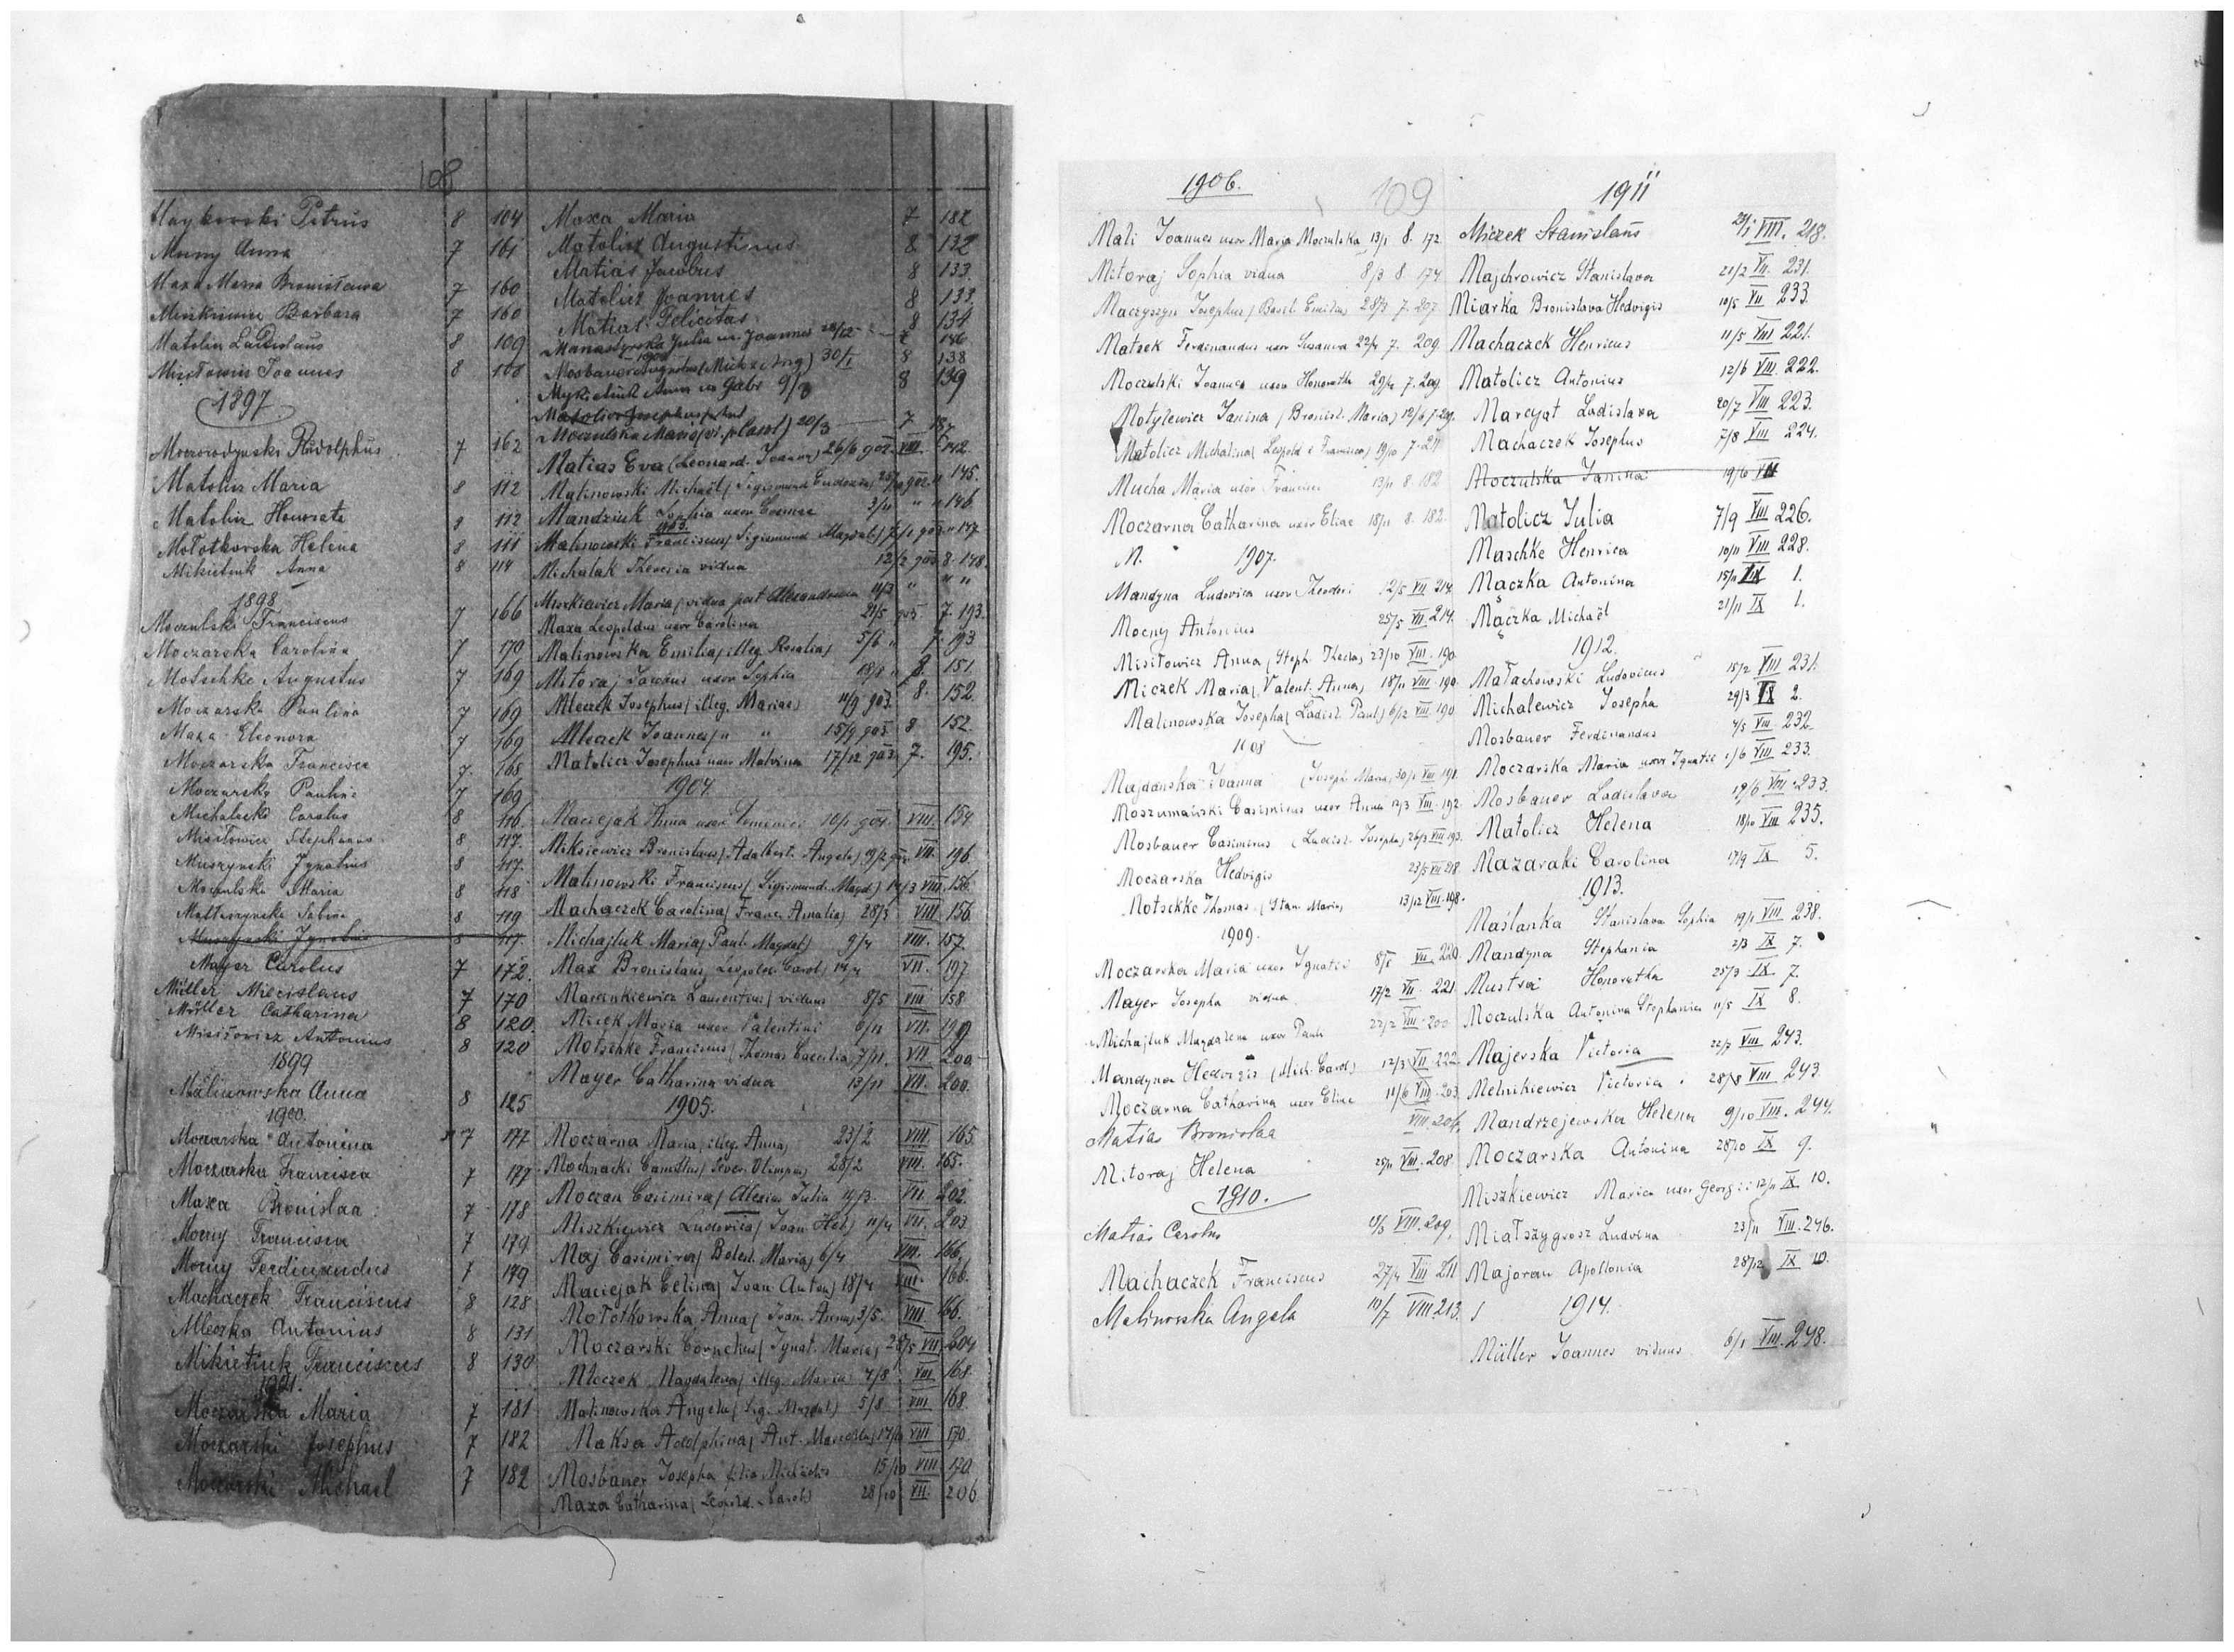 108
Petrus 8 104
Mocny Anna 7 161
Maxa Maria Bronisława 7 160
Barbara 7 160
Matolicz Ladislaus 8 109
Misiłowicz Joannes 8 108
1897
Rudolphus 7 162
Matolicz Maria 8 112
Matolicz Honorata 8 112
Mołotkowska Helena 8 111
Mikietiuk Anna 8 114
1898
Moczulski Franciscus 7 166
Moczarska Carolina 7 170
Motschke Augustus 7 169
Moczarska Paulina 7 169
Maxa Eleonora 7 169
Moczarska Francisca 7 168
Moczarska Paulina 7 169
Michalecki Carolus 8 116.
Misiłowicz Stephanus 8 117.
Muszyński Ignatius 8 117.
Moczulska Maria 8 118
Sabina 8 119
Muszyński Ignatius 8 117.
Mayer Carolus 7 172.
Müller Miecislaus 7 170
Müller Catharina 8 120.
Misiłowicz Antonius 8 120
1899
Malinowska Anna 8 125
1900.
Moczarska Antonina 7 177
Moczarska Francisca 7 177
Maxa Bronislaa 7 178
Mocny Francisca 7 179
Mocny Ferdinandus 7 179
Machaczek Franciscus 8 128
Mleczko Antonius 8 131
Mikietiuk Franciscus 8 130
1901.
Moczarska Maria 7 181
Moczarski Josephus 7 182
Moczarski Michael 7 182
Maxa Maria 7 182
Matolicz Augustinus 8 132
Matias Jacobus 8 133.
Matolicz Joannes 8 133.
Matias Felicitas 8 134
Manasterska Julia ux. Joannes 28/12 146
1902
Mosbauer Augusta (Mich. et Aug) 30/I 8 138
Mykietiuk Anna ux Gabr 9/3 8 139
Matolicz Josephus
Moczulska Maria 20/3 7 187
Matias Eva (Leonard. Joanna) 26/6 902 VIII. 142.
Malinowski Michael (Sigismund Eudoxia) 902 " 145.
Mandziuk Sophia uxor Cosmae 3/11 " " 146.
1903.
Malinowski Franciscus (Sigismund Magdal.) 7/1 903 " 147
Michalak Theresia vidua 12/2 903 8. 148.
Miszkiewicz Maria (vidua post Alexandrum 11/3 " " "
Maxa Leopoldus uxor Carolina 21/5 903 7. 193.
Malinowska Emilia (illeg. Rosalia) 5/6 " 7. 193
Mitoraj Joannes uxor Sophia 18/8 " 8. 151.
Mleczek Josephus (illeg. Mariae) 11/9 903. 8. 152.
Mleczek Joannes (" " 15/9 903 8 152.
Matolicz Josephus uxor Malvina 17/12 903. 7. 195.
1904.
Maciejak Anna uxor 10/1 904. VIII. 154
Miksiewicz Bronislaus (Adalbert. Angela) 19/2 904 VII. 196
Malinowski Franciscus (Sigismund. Magd.) 14/3 VIII. 156.
Machaczek Carolina (Franc. Amalia) 28/3 VIII 156.
Michajluk Maria (Paul. Magdal) 9/4 VIII. 157.
Max Bronislaus, Leopold. Carol. VII. 197
Marcinkiewicz Laurentius / viduus 8/5 VIII 158
Micek Maria uxor Valentini 6/11 VII. 199
Motschke Franciscus (Thomas Caecilia) 7/11. VII. 200
Mayer Catharina vidua 13/11 VII. 200.
1905.
Moczarna Maria, illeg. Anna, 23/2 VIII 165.
Mochnacki Camillus (Sever. Olimpia) 28/2 VIII. 165.
Moczan Casimira (Alexius Julia 19/3. VII. 202.
Miszkiewicz Ludovica (Joan Hel.) 11/4 VII. 203
Maj Casimira (Bolest. Maria) 6/4 VIII. 166.
Maciejak Celina (Joan Anton) 18/4 VIII. 166.
Mołotkowska Anna (Joan. Anna) 3/5. VIII. 166.
Moczarski Cornelius (Ignat. Maria) 28/5 VII 204
Mleczek Magdalena (illeg. Maria) 7/8 VIII 168.
Malinowska Angela (Sig. Magdal) 5/8 VIII 168.
Maksa Adolphina (Ant. VIII 170.
Mosbauer Josepha filia Michaelis 15/10 VIII 170
Maxa Catharina (Leopold. Carol.) 28/10 VII. 206.
1906.
109
Mali Joannes uxor Maria Moczulska 13/1 8. 172.
Mitoraj Sophia vidua 8/3 8. 174
Maczyszyn Josephus (Basil. 28/3 7. 207
Matzek Ferdinandus uxor Susanna 22/4 7. 209.
Moczulski Joannes uxor Honorata 29/4 7. 209
Motylewicz Janina (Bronisl. Maria) 12/6 7. 209.
Matolicz Michalina (Leopold et Francisca) 19/10 7. 211
Mucha Maria uxor Francisci 13/11 8. 182
Moczarna Catharina uxor Eliae 18/11 8. 182.
M. 1907.
Mandyna Ludovica uxor Theodori 12/5 VII 214.
Mocny Antonius 25/5 VII 214.
Misiłowicz Anna (Steph. Thecla) 23/10 VIII. 190.
Miczek Maria (Valent. Anna) 18/11 VIII. 190.
Malinowska Josepha (Ladisl. Paul.) 6/12 VIII. 190
1908
Majdanska Joanna (Joseph. Maria) 30/1 VIII 191.
Moszumański Casimirus uxor Anna 12/3 VIII. 192.
Mosbauer Casimirus (Ladisl. Josepha) 26/3 VIII 193.
Moczarska Hedvigis 23/5 VII 218
Motschke Thomas. (Stan. Maria) 13/12 VIII. 198.
1909.
Moczarska Maria uxor Ignatii VII. 220.
Mayer Josepha vidua 17/2 VII. 221
Michajluk Magdalena uxor Pauli 22/2 VIII. 200
Mandyna Hedvigis (Mich. Carol.) 12/3 VII. 222.
Moczarna Catharina uxor Eliae 11/6 VIII. 203
Matias Bronislaa VIII. 204.
Mitoraj Helena 25/11 VIII. 208
1910.
Matias Carolus VIII. 209.
Machaczek Franciscus 27/4 VIII 211
Malinowska Angela 10/7 VIII. 213.
1911
Miczek Stanislaus VIII. 218.
Majchrowicz Stanislava 21/2 VII. 231.
Miarka Bronislava Hedvigis 10/5 VII 233.
Machaczek Henricus 11/5 VIII 221.
Matolicz Antonius 12/6 VIII. 222.
Marcyat Ladislava 20/7 VIII 223.
Machaczek Josephus 7/8 VIII 224.
Moczulska Janina 19/10 VII
Matolicz Julia 7/9 VIII 226.
Maschke Henrica 10/11 VIII 228.
Mączka Antonina 15/11 IX 1.
Mączka Michaël 21/11 IX 1.
1912.
Małachowski Ludovicus 15/2 VIII 231.
Michalewicz Josepha 29/3 IX 2.
Mosbauer Ferdinandus 4/5 VIII. 232.
Moczarska Maria uxor Ignatii 1/6 VIII 233.
Mosbauer Ladislava 19/6 VIII. 233.
Matolicz Helena 18/10 VIII 235.
Mazaraki Carolina 17/9 IX 5.
1913.
Maślanka Stanislava Sophia 19/1 VIII 238.
Mandyna Stephania 2/3 IX 7.
Honoratha 25/3 IX. 7.
Moczulska Antonina Stephania 11/5 IX 8.
Majerska Victoria 22/7 VIII 243.
Melnikiewicz Victoria 28/8 VIII 243
Mandrzejewska Helena 9/10 VIII. 244.
Moczarska Antonina 28/10 IX 9.
Miszkiewicz Maria uxor Georgii 12/11 IX 10.
Miałszygrosz Ludvina 23/11 VIII. 246.
Majoran Apollonia 28/12 IX 10.
1914.
Müller Joannes viduus 6/1 VIII. 248.